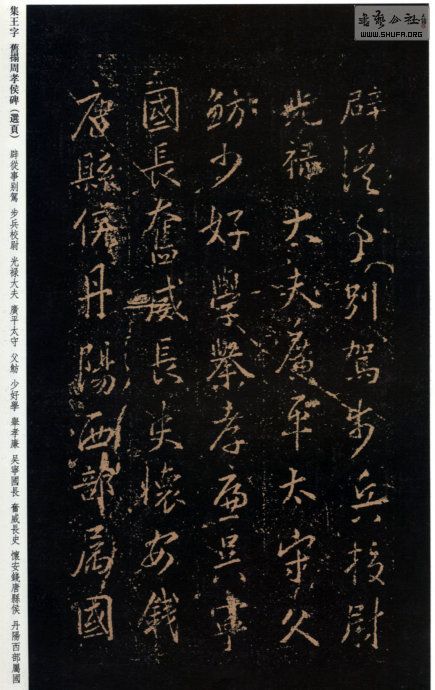 辟從事別駕步兵校尉
光祿大夫廣平太守父
魴少好學舉孝廉吳寧
國長奮威長史懷安錢
唐縣侯丹陽西部屬國
集王字 舊搨周孝侯碑（選頁） 辟從事別駕 步兵校尉 光祿大夫 廣平太守 父魴 少好學 舉孝廉 吳寧國長 奮威長史 懷安錢唐縣侯 丹陽西部屬國
WWW.SHUFA.ORG